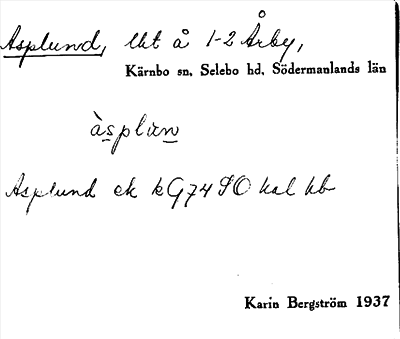 Asplund, lht å 1-2 Årby,
Kärnbo sn. Selebo hd. Södermanlands län
àsplun
Asplund ek kG74 SO kal hb
Karin Bergström 1937